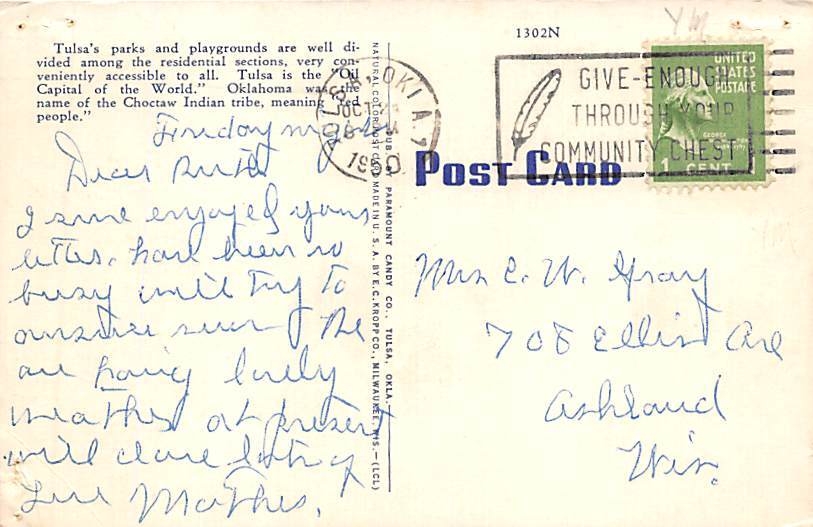 1302N
Tulsa's parks and playgrounds are well di-
vided among the residential sections, very con-
veniently accessible to all. Tulsa is the "Oil
Capital of the World." Oklahoma was the
name of the Choctaw Indian tribe, meaning "red
people."
NATURAL COLOR POST CARD MADE IN U. S. A. BY E. C. KROPP CO., MILWAUKEE, WIS.—(LCL)
PUB. BY PARAMOUNT CANDY CO., TULSA, OKLA.
TULSA, OKLA.
OCT
GIVE-ENOUGH
THROUGH YOUR
COMMUNITY CHEST
UNITED
STATES
POSTAGE
GEORGE
1 CENT
POST CARD
Friday
Dear Ruth
I sure enjoyed your
letter. have been so
busy will try to
answer soon The
are having lovely
weather at present
will close lots of
Love Mother.
Mrs E. W. Gray
708 Ellis Ave
Ashland
Wis.
YM